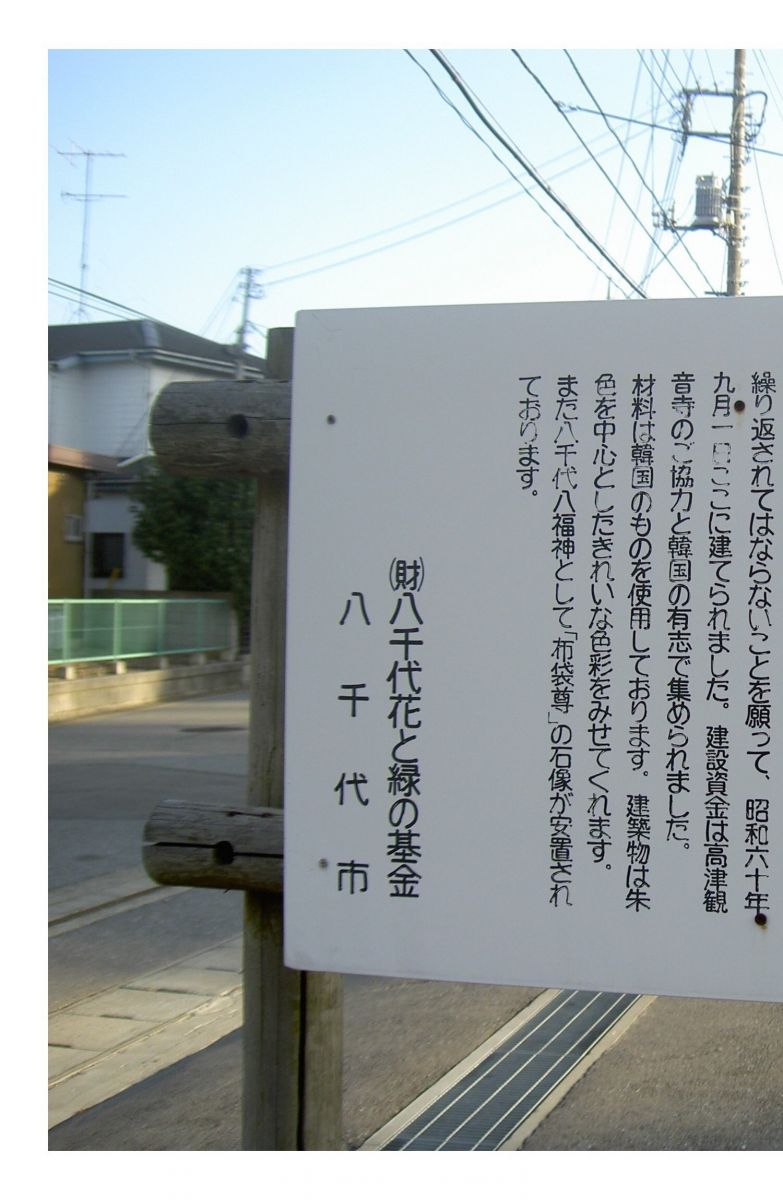 繰り返されてはならないことを願って、昭和六十年
九月一日ここに建てられました。建設資金は高津観
音寺のご協力と韓国の有志で集められました。
材料は韓国のものを使用しております。建築物は朱
色を中心としたきれいな色彩をみせてくれます。
また八千代八福神として「布袋尊」の石像が安置され
ております。
㈶八千代花と緑の基金
八千代市